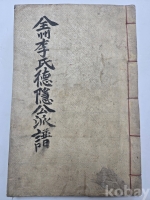 全州李氏德隱公派譜
kobay